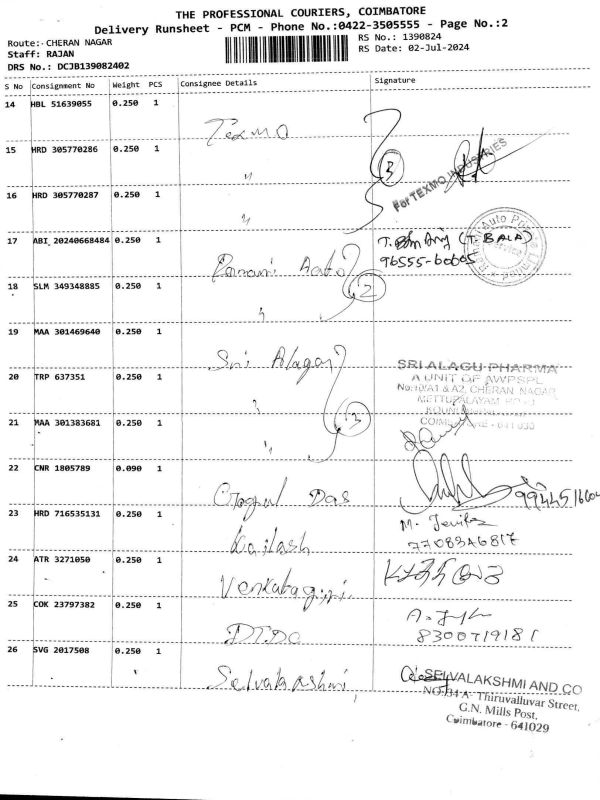 THE PROFESSIONAL COURIERS, COIMBATORE
Delivery Runsheet - PCM - Phone No.:0422-3505555 - Page No.:2
Route:- CHERAN NAGAR
RS No.: 1390824
Staff: RAJAN
RS Date: 02-Jul-2024
DRS No.: DCJB139082402
S No Consignment No Weight PCS Consignee Details Signature
14 HBL 51639055 0.250 1
Texmo
15 HRD 305770286 0.250 1
"
3
For TEXMO INDUSTRIES
16 HRD 305770287 0.250 1
"
17 ABI 20240668484 0.250 1
(T. BALA)
Ramani Auto
96555-60605
18 SLM 349348885 0.250 1
"
2
19 MAA 301469640 0.250 1
Sri Alagar
SRI ALAGU PHARMA
20 TRP 637351 0.250 1
A UNIT OF AWPSPL
No:30/A1 & A2, CHERAN NAGAR
"
METTUPALAYAM
21 MAA 301383681 0.250 1
3
COIMBATORE - 641 030
"
22 CNR 1805789 0.090 1
Das
23 HRD 716535131 0.250 1
M.
Kailash
7708346817
24 ATR 3271050 0.250 1
Venkatagiri
25 COK 23797382 0.250 1
A.
DTDC
8300719181
26 SVG 2017508 0.250 1
Selvalakshmi
SELVALAKSHMI AND CO
NO:34-A- Thiruvalluvar Street,
G.N. Mills Post,
Coimbatore - 641029